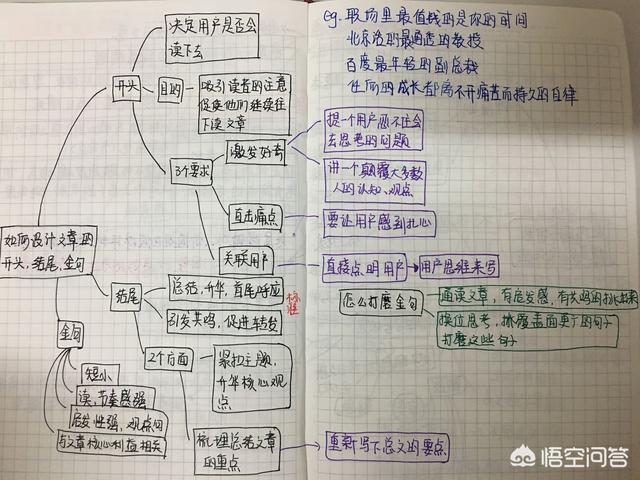 eg. 职场里最值钱的是你的时间
百度最年轻的副总裁
任何的成长都离不开痛苦而持久的自律
决定用户是否会
读下去
开头
目的
吸引读者的注意
促使他们继续往
下读文章
3个要求
激发好奇
提一个用户忍不住会
去思考的问题
讲一个颠覆大多数
人的认知、观点
直击痛点
要让用户感到扎心
关联用户
直接点明用户
用户思维来写
如何设计文章的
开头,结尾,金句
结尾
总结,升华,首尾呼应
引发共鸣,促进转发
标准
2个方面
紧扣主题,
升华核心观
点
梳理总结文章
的重点
重新写下总文的要点
金句
短小
读,节奏感强
启发性强,观点
与文章核心利益相关
怎么打磨金句
通读文章,有启发感,有
换位思考,
打磨这些句子
悟空问答